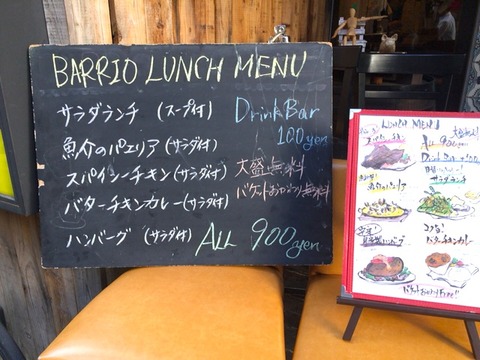 BARRIO LUNCH MENU
サラダランチ (スープ付)
魚介のパエリア (サラダ付)
スパイシーチキン (サラダ付)
バターチキンカレー (サラダ付)
ハンバーグ (サラダ付)
Drink Bar
100yen
大盛無料
バケットおかわり無料
ALL 900yen
LUNCH MENU
大盛無料
ALL 900yen
Drink Bar +100
サラダランチ
バターチキンカレー
バケットおかわりFree!!